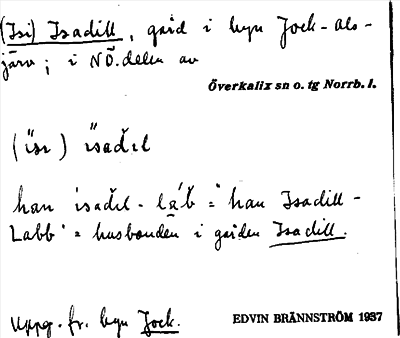 (Isi) Isadill, gård i byn Jock-als-
järv; i NÖ.delen av
Överkalix sn o. tg Norrb. l.
(ïsı) ïsadıl
han ısadıl-lab = "han Isadill-
Labb" = husbonden i gården Isadill.
Uppg. fr. byn Jock.
EDVIN BRÄNNSTRÖM 1937